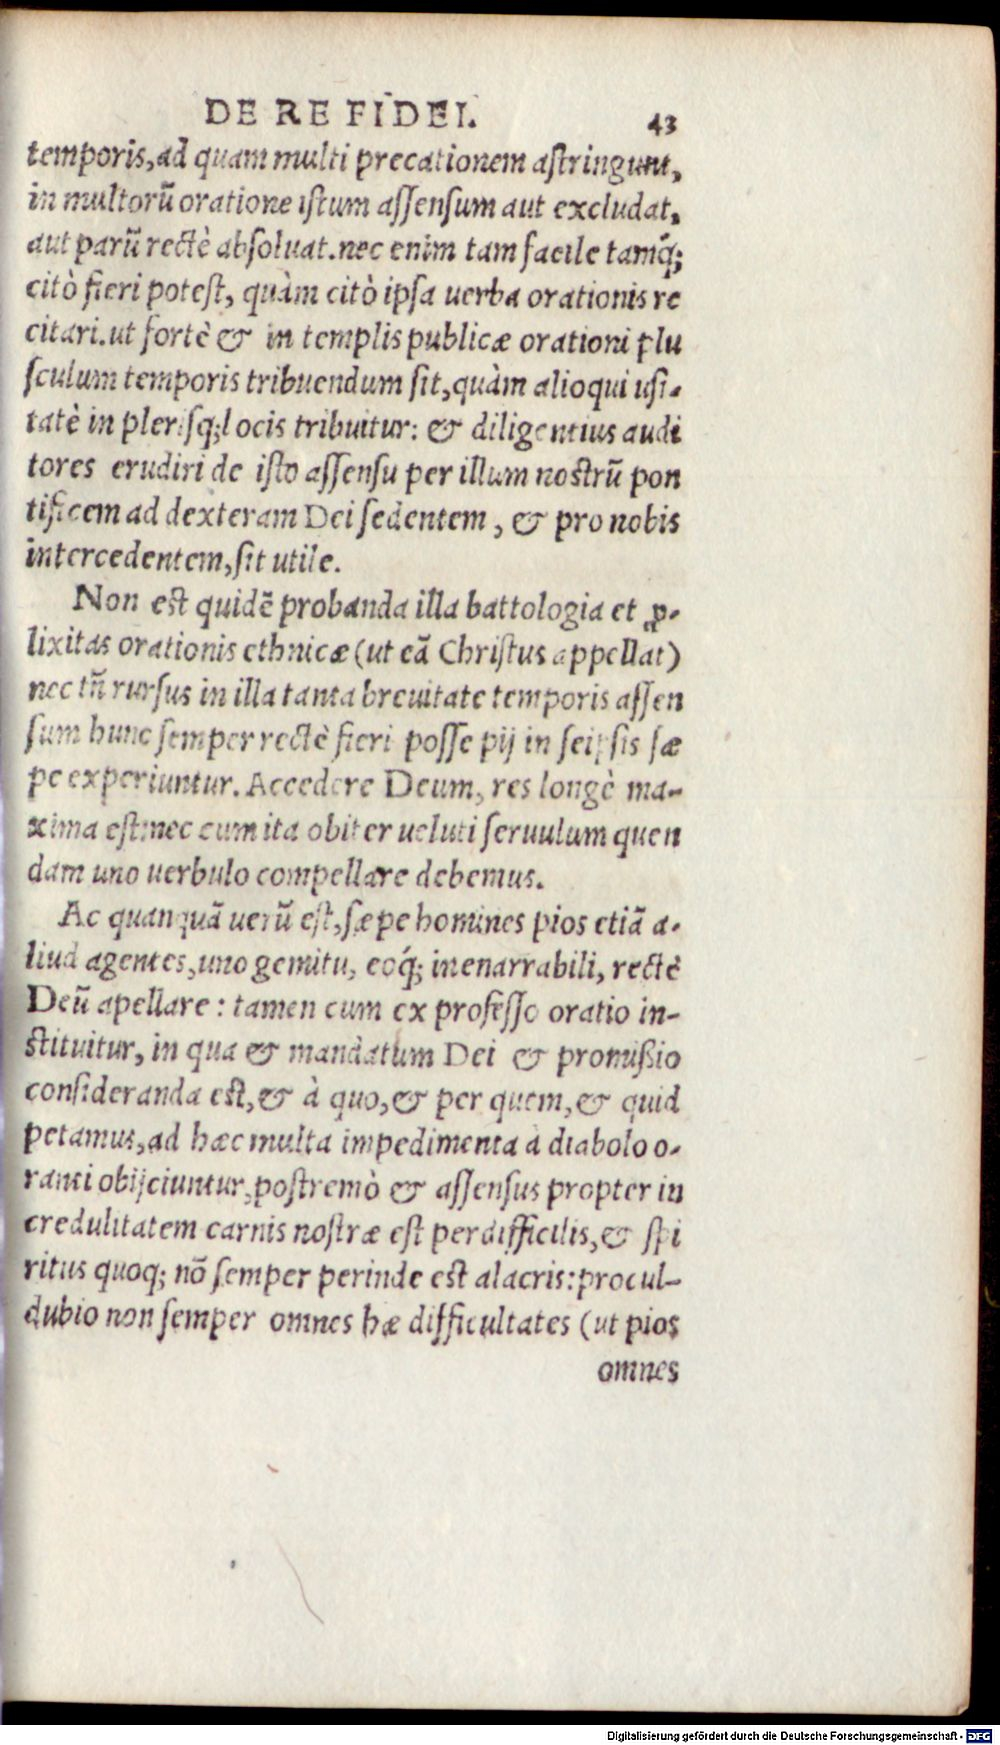 DE RE FIDEI. 43
temporis, ad quam multi precationem astringunt,
in multorū oratione istum assensum aut excludat,
aut parū rectè absoluat. nec enim tam facile tamq́;
citò fieri potest, quàm citò ipsa uerba orationis re
citari. ut fortè & in templis publicæ orationi plu
sculum temporis tribuendum sit, quàm alioqui usi-
tatè in plerisq; locis tribuitur: & diligentius audi
tores erudiri de isto assensu per illum nostrū pon
tificem ad dexteram Dei sedentem, & pro nobis
intercedentem, sit utile.
Non est quidē probanda illa battologia et ꝓ-
lixitas orationis ethnicæ (ut eā Christus appellat)
nec tñ rursus in illa tanta breuitate temporis assen
sum hunc semper rectè fieri posse pij in seipsis sæ
pe experiuntur. Accedere Deum, res longè ma-
xima est: nec eum ita obiter ueluti seruulum quen
dam uno uerbulo compellare debemus.
Ac quanquā uerū est, sæpe homines pios etiā a-
liud agentes, uno gemitu, eoq́; inenarrabili, rectè
Deū apellare: tamen cum ex professo oratio in-
stituitur, in qua & mandatum Dei & promißio
consideranda est, & à quo, & per quem, & quid
petamus, ad hæc multa impedimenta à diabolo o-
ranti obijciuntur, postremò & assensus propter in
credulitatem carnis nostræ est perdifficilis, & spi
ritus quoq; nō semper perinde est alacris: procul-
dubio non semper omnes hæ difficultates (ut pios
omnes
Digitalisierung gefördert durch die Deutsche Forschungsgemeinschaft - DFG